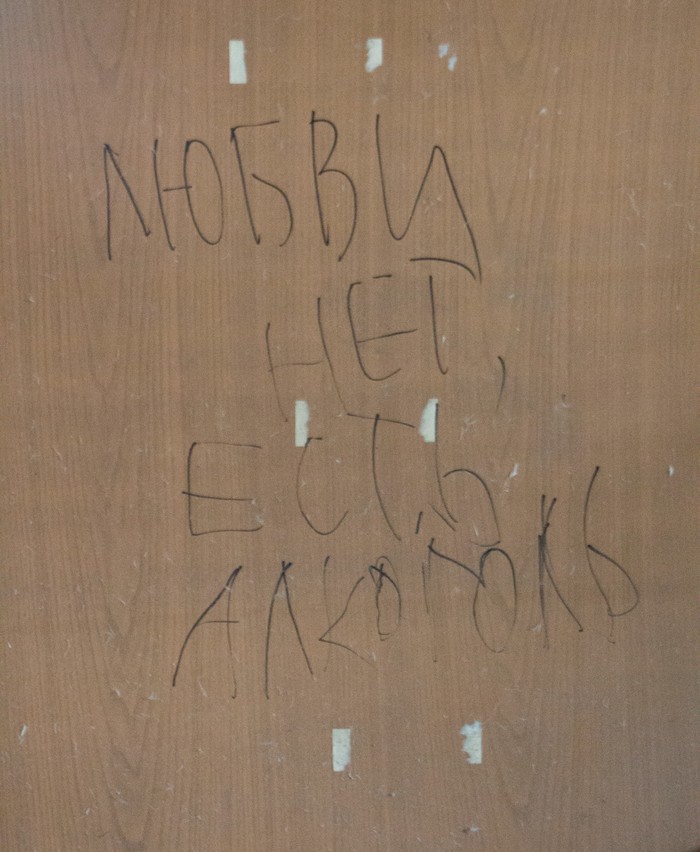 ЛЮБВИ
НЕТ,
ЕСТЬ
АЛКОГОЛЬ